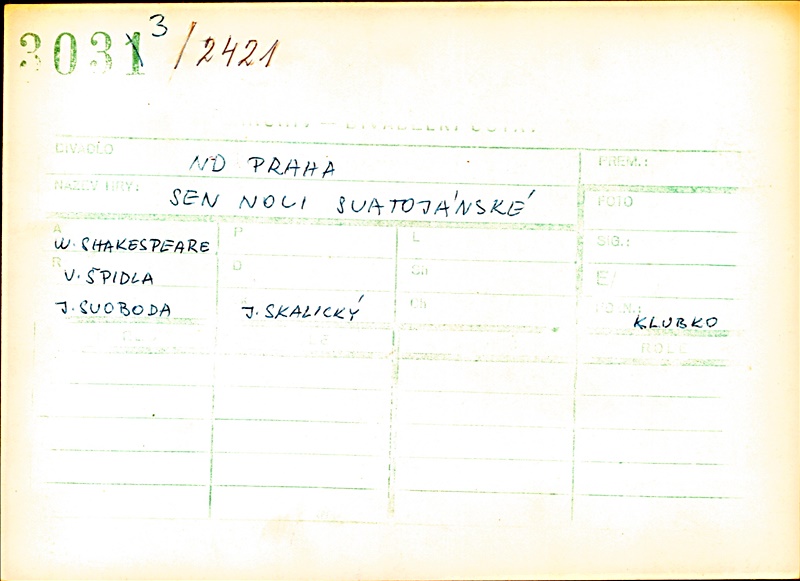 3031 3 / 2421
ARCHIV — DIVADELNÍ ÚSTAV
DIVADLO ND PRAHA PREM.:
NÁZEV HRY: SEN NOCI SVATOJÁNSKÉ FOTO
A W. SHAKESPEARE P L SIG.:
R V. ŠPIDLA D Ch E/
J. SVOBODA J. SKALICKÝ Ch KLUBKO
ROLE